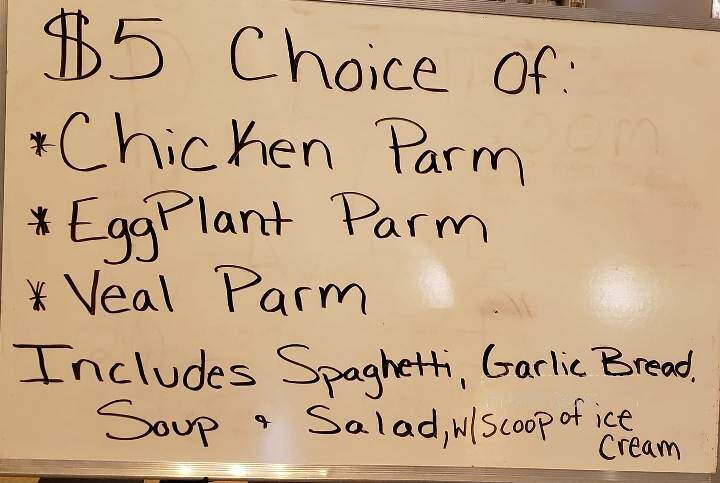 $5 Choice Of:
* Chicken Parm
* EggPlant Parm
* Veal Parm
Includes Spaghetti, Garlic Bread.
Soup & Salad, w/ Scoop of ice
Cream